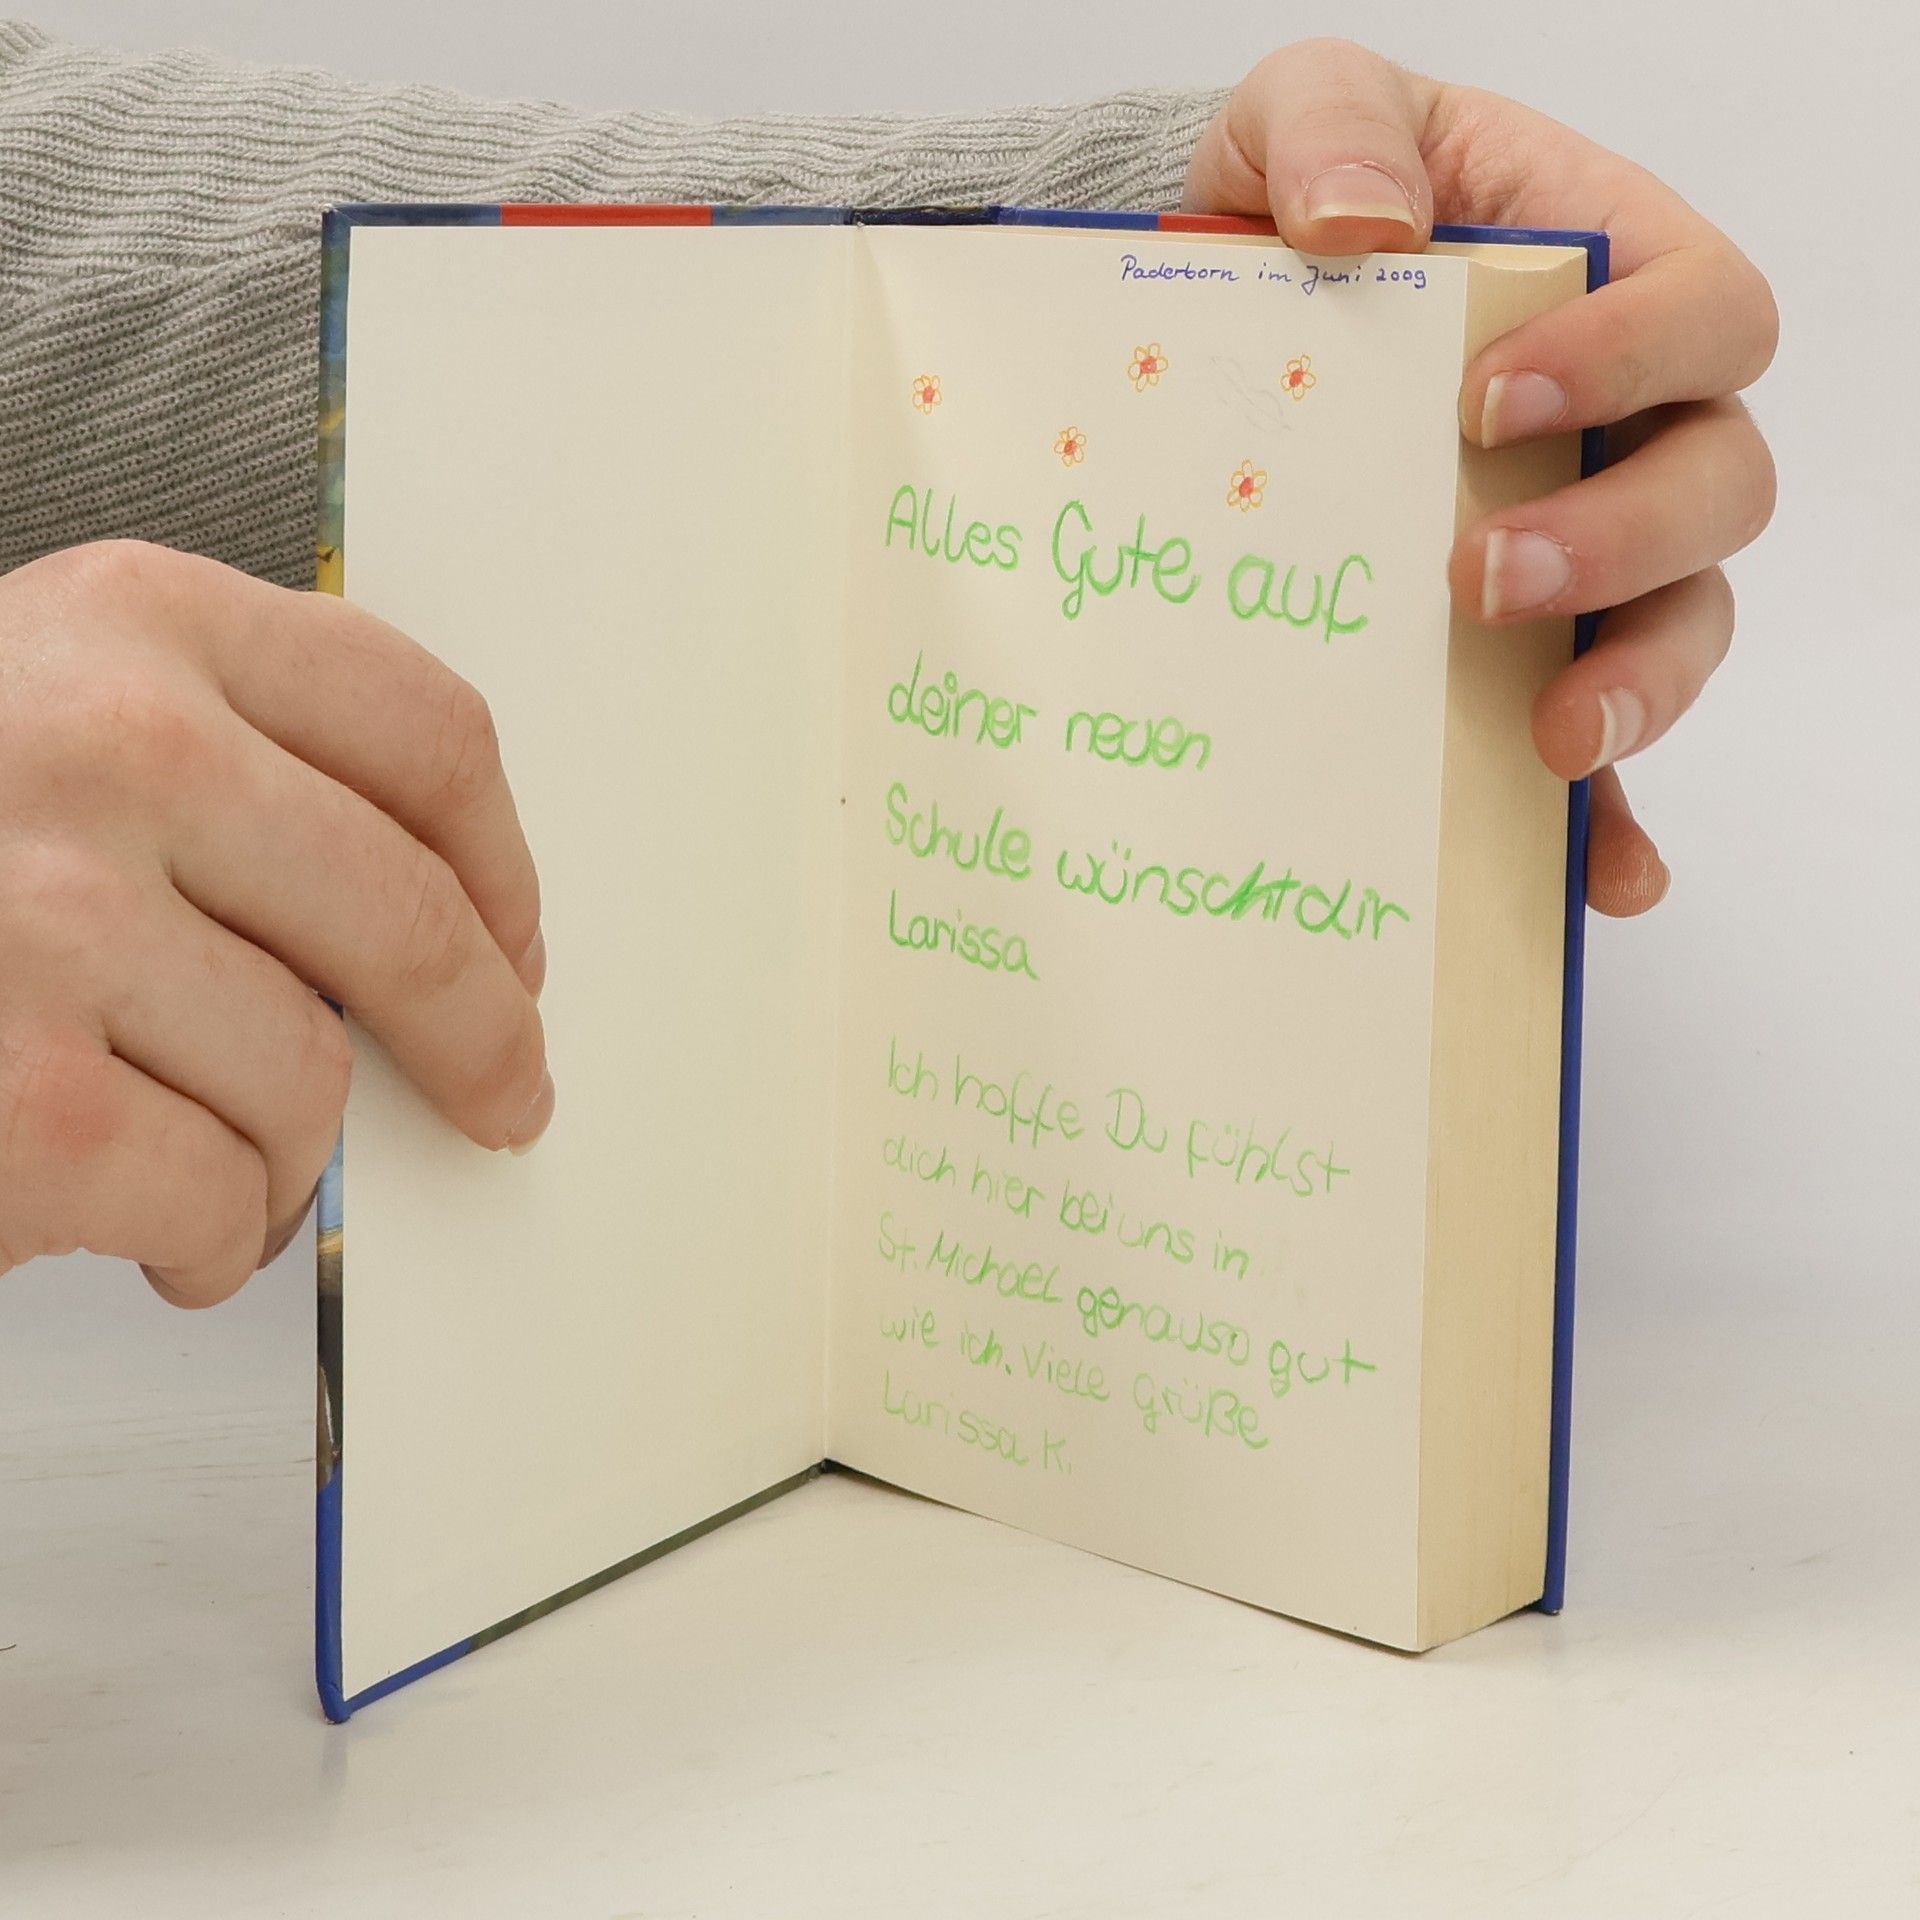 Paderborn im Juni 2009
Alles Gute auf
deiner neuen
Schule wünscht dir
Larissa
Ich hoffe Du fühlst
dich hier bei uns in
St. Michael genauso gut
wie ich. Viele Grüße
Larissa K.